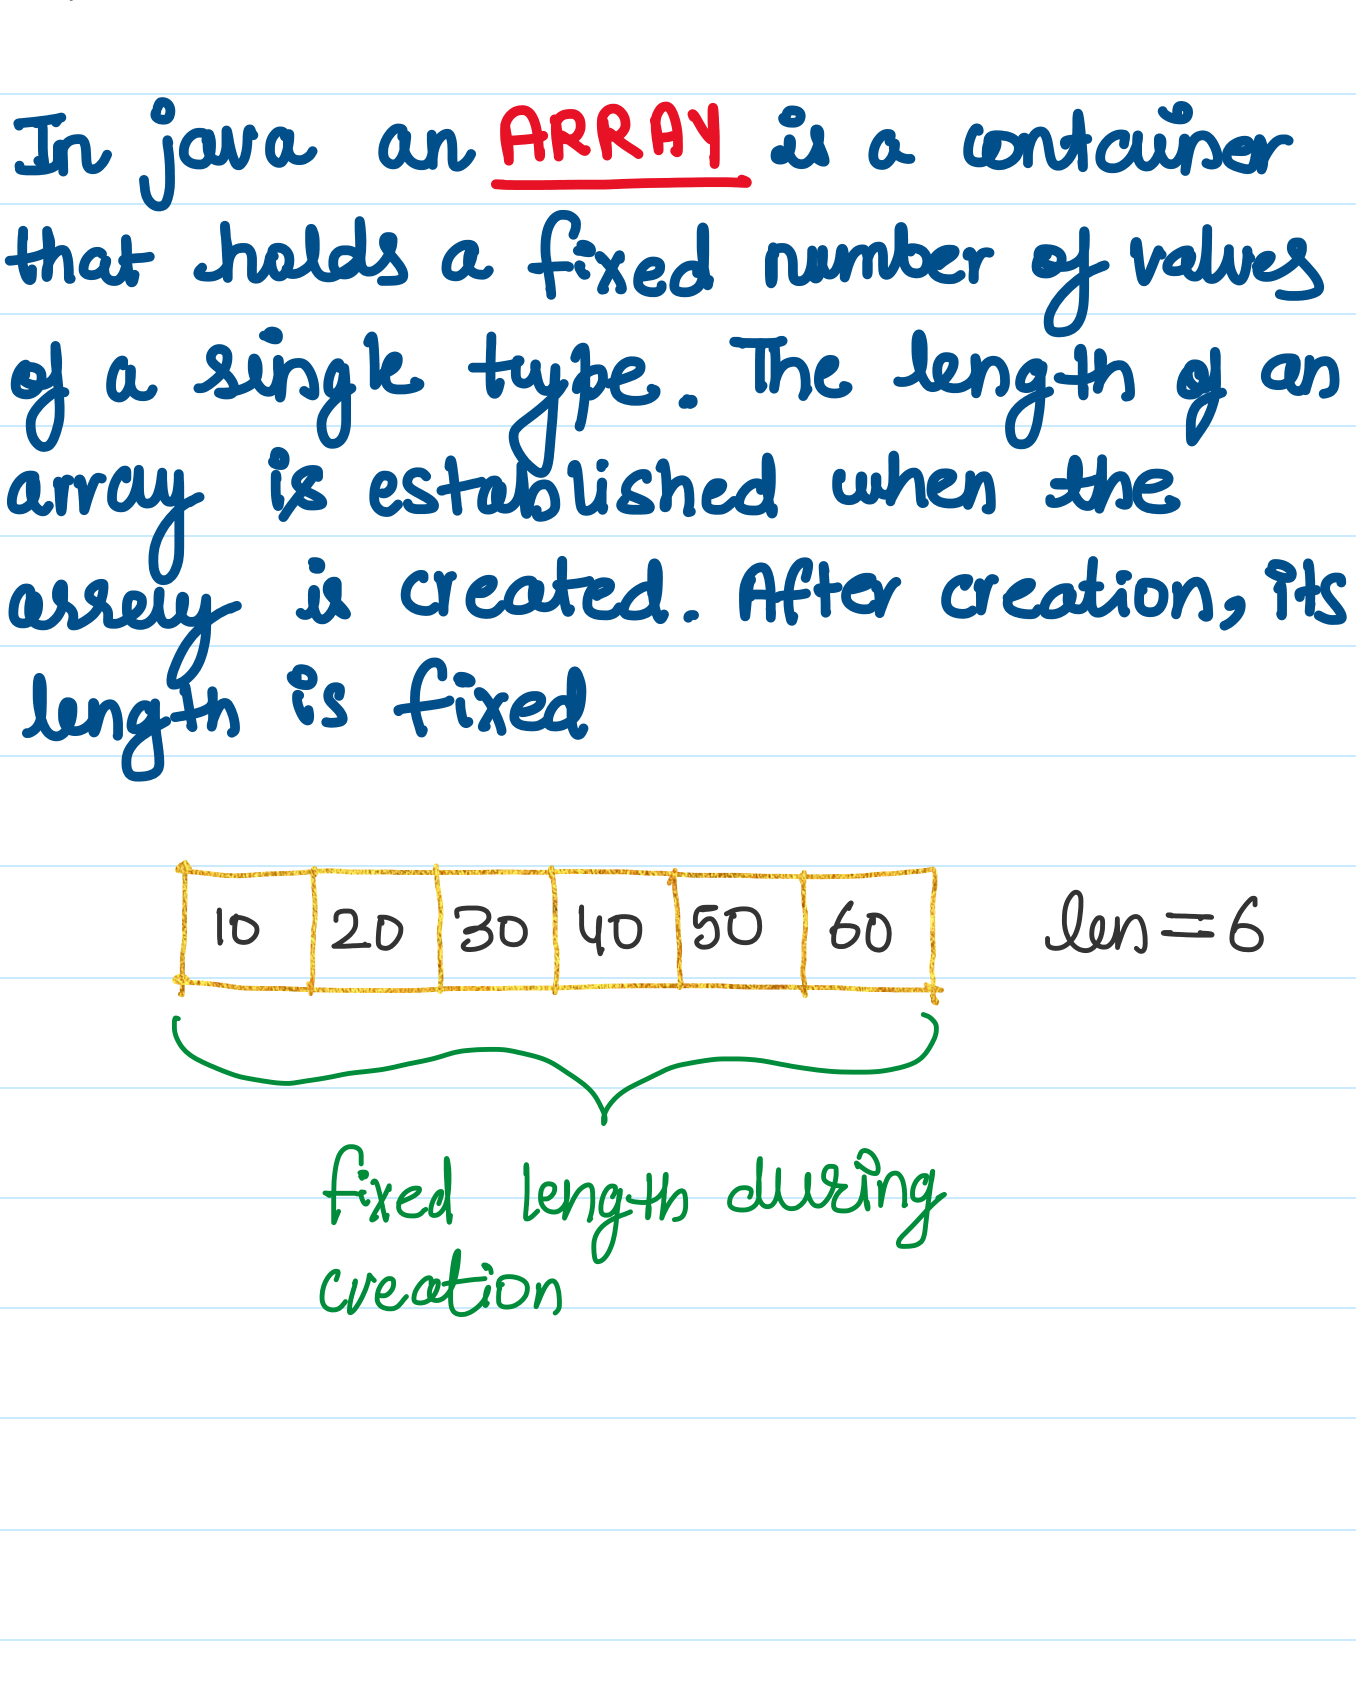 In java an ARRAY is a container
that holds a fixed number of values
of a single type. The length of an
array is established when the
array is created. After creation, its
length is fixed
10 20 30 40 50 60 len=6
fixed length during
creation